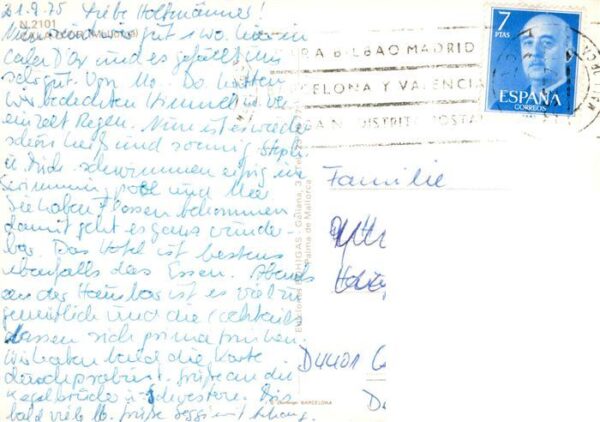 21.9.75 Liebe Holtmännes!
N. 2101
Nun sind wir gut 1 Wo. hier in
Cala D'Or und es gefällt uns
sehr gut. Von Mo - Do hatten
wir bedeckten Himmel u. ver
einzelt Regen. Nun ist es wieder
schön heiß und sonnig
u. Dirk schwimmen eifrig im
Swimming pool und Meer
Sie haben Flossen bekommen
damit geht es ganz wunder-
bar. Das Hotel ist bestens
ebenfalls das Essen. Abends
an der Hausbar ist es viel zu
gemütlich und die Cocktails
lassen sich prima trinken.
Wir haben bald die Karte
durchprobiert. Grüße an die
Kegelbrüder u. Schwestern. Bis
bald viele lb. Grüße
BILBAO MADRID
CELONA Y VALENCIA
DISTRITO POSTAL
7
PTAS
ESPAÑA
CORREOS
Familie
D 4401
Galiana, 3
Palma de Mallorca
BARCELONA